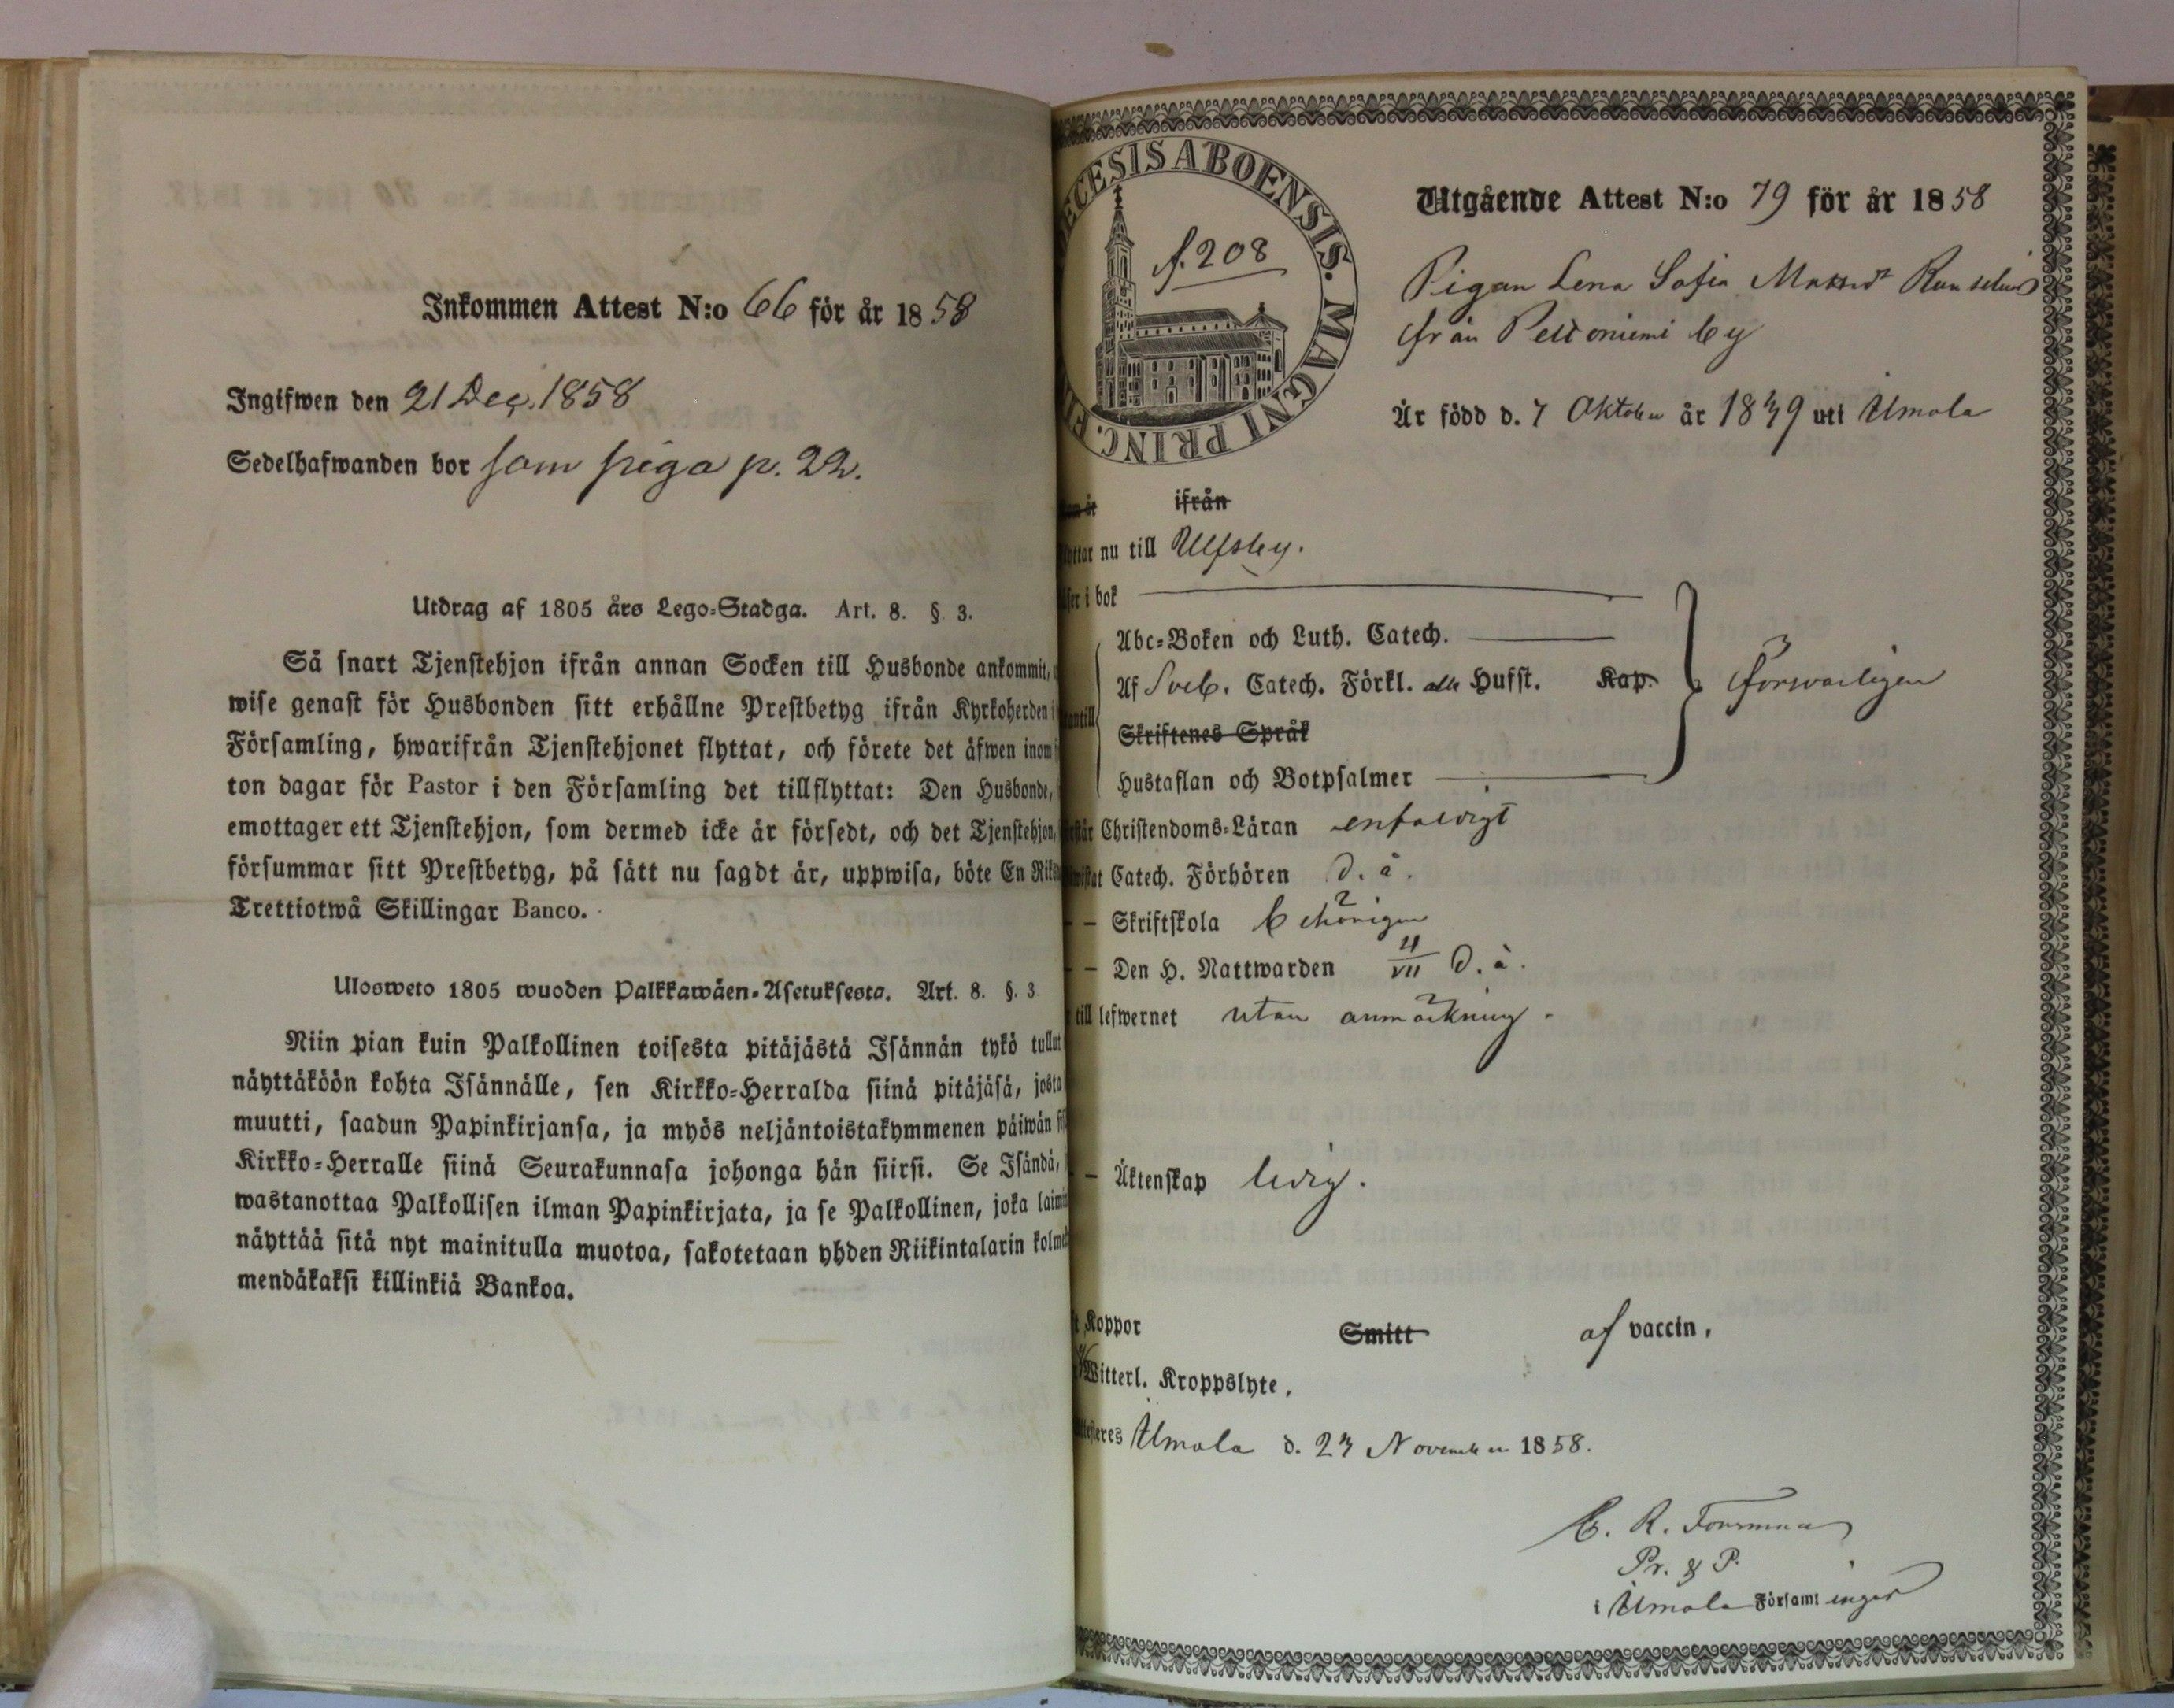 Inkommen Attest N:o 66 för år 1858
Ingifwen den 21 Dec. 1858
Sedelhafwanden bor som piga p. 22.
Utdrag af 1805 års Lego-Stadga. Art. 8. §. 3.
Så snart Tjenstehjon ifrån annan Socken till Husbonde ankommit,
wise genast för Husbonden sitt erhållne Prestbetyg ifrån Kyrkoherden i
Församling, hwarifrån Tjenstehjonet flyttat, och förete det äfwen inom
ton dagar för Pastor i den Församling det tillflyttat: Den Husbonde,
emottager ett Tjenstehjon, som dermed icke är försedt, och det Tjenstehjon,
försummar sitt Prestbetyg, på sätt nu sagdt är, uppwisa, böte En Riks
Trettiotwå Skillingar Banco.
Ulosweto 1805 wuoden Palkkawäen-Asetuksesta. Art. 8. §. 3
Niin pian kuin Palkollinen toisesta pitäjästä Isännän tykö tullut
näyttäköön kohta Isännälle, sen Kirkko-Herralda siinä pitäjäsä, josta
muutti, saadun Papinkirjansa, ja myös neljäntoistakymmenen päiwän
Kirkko-Herralle siinä Seurakunnasa johonga hän siirsi. Se Isändä,
wastanottaa Palkollisen ilman Papinkirjata, ja se Palkollinen, joka laim
näyttää sitä nyt mainitulla muotoa, sakotetaan yhden Riikintalarin kolme
mendäkaksi killinkiä Bankoa.
ECESIS ABOENSIS. MAGNI PRINC. F
f. 208
Utgående Attest N:o 79 för år 1858
Pigan Lena Sofia
från Peltoniemi by
Är född d. 7 Oktober år 1839 uti Ulmala
ifrån
nu till Ulfsby.
i bok
Abc-Boken och Luth. Catech.
Af Sveb. Catech. Förkl. alla Hufst. Kap.
Skriftenes Språk
Hustaflan och Botpsalmer
försvarligen
Christendoms-Läran enfaldigt
Catech. Förhören d. å.
- Skriftskola behörigen
- Den H. Nattwarden VII d. å.
till lefwernet utan anmärkning.
- Äktenskap ledig.
Koppor Smitt af vaccin,
Witterl. Kroppslyte,
Ulmala d. 23 November 1858.
C. R. Forsman
Pr. & P.
i Ulmala Församlingar